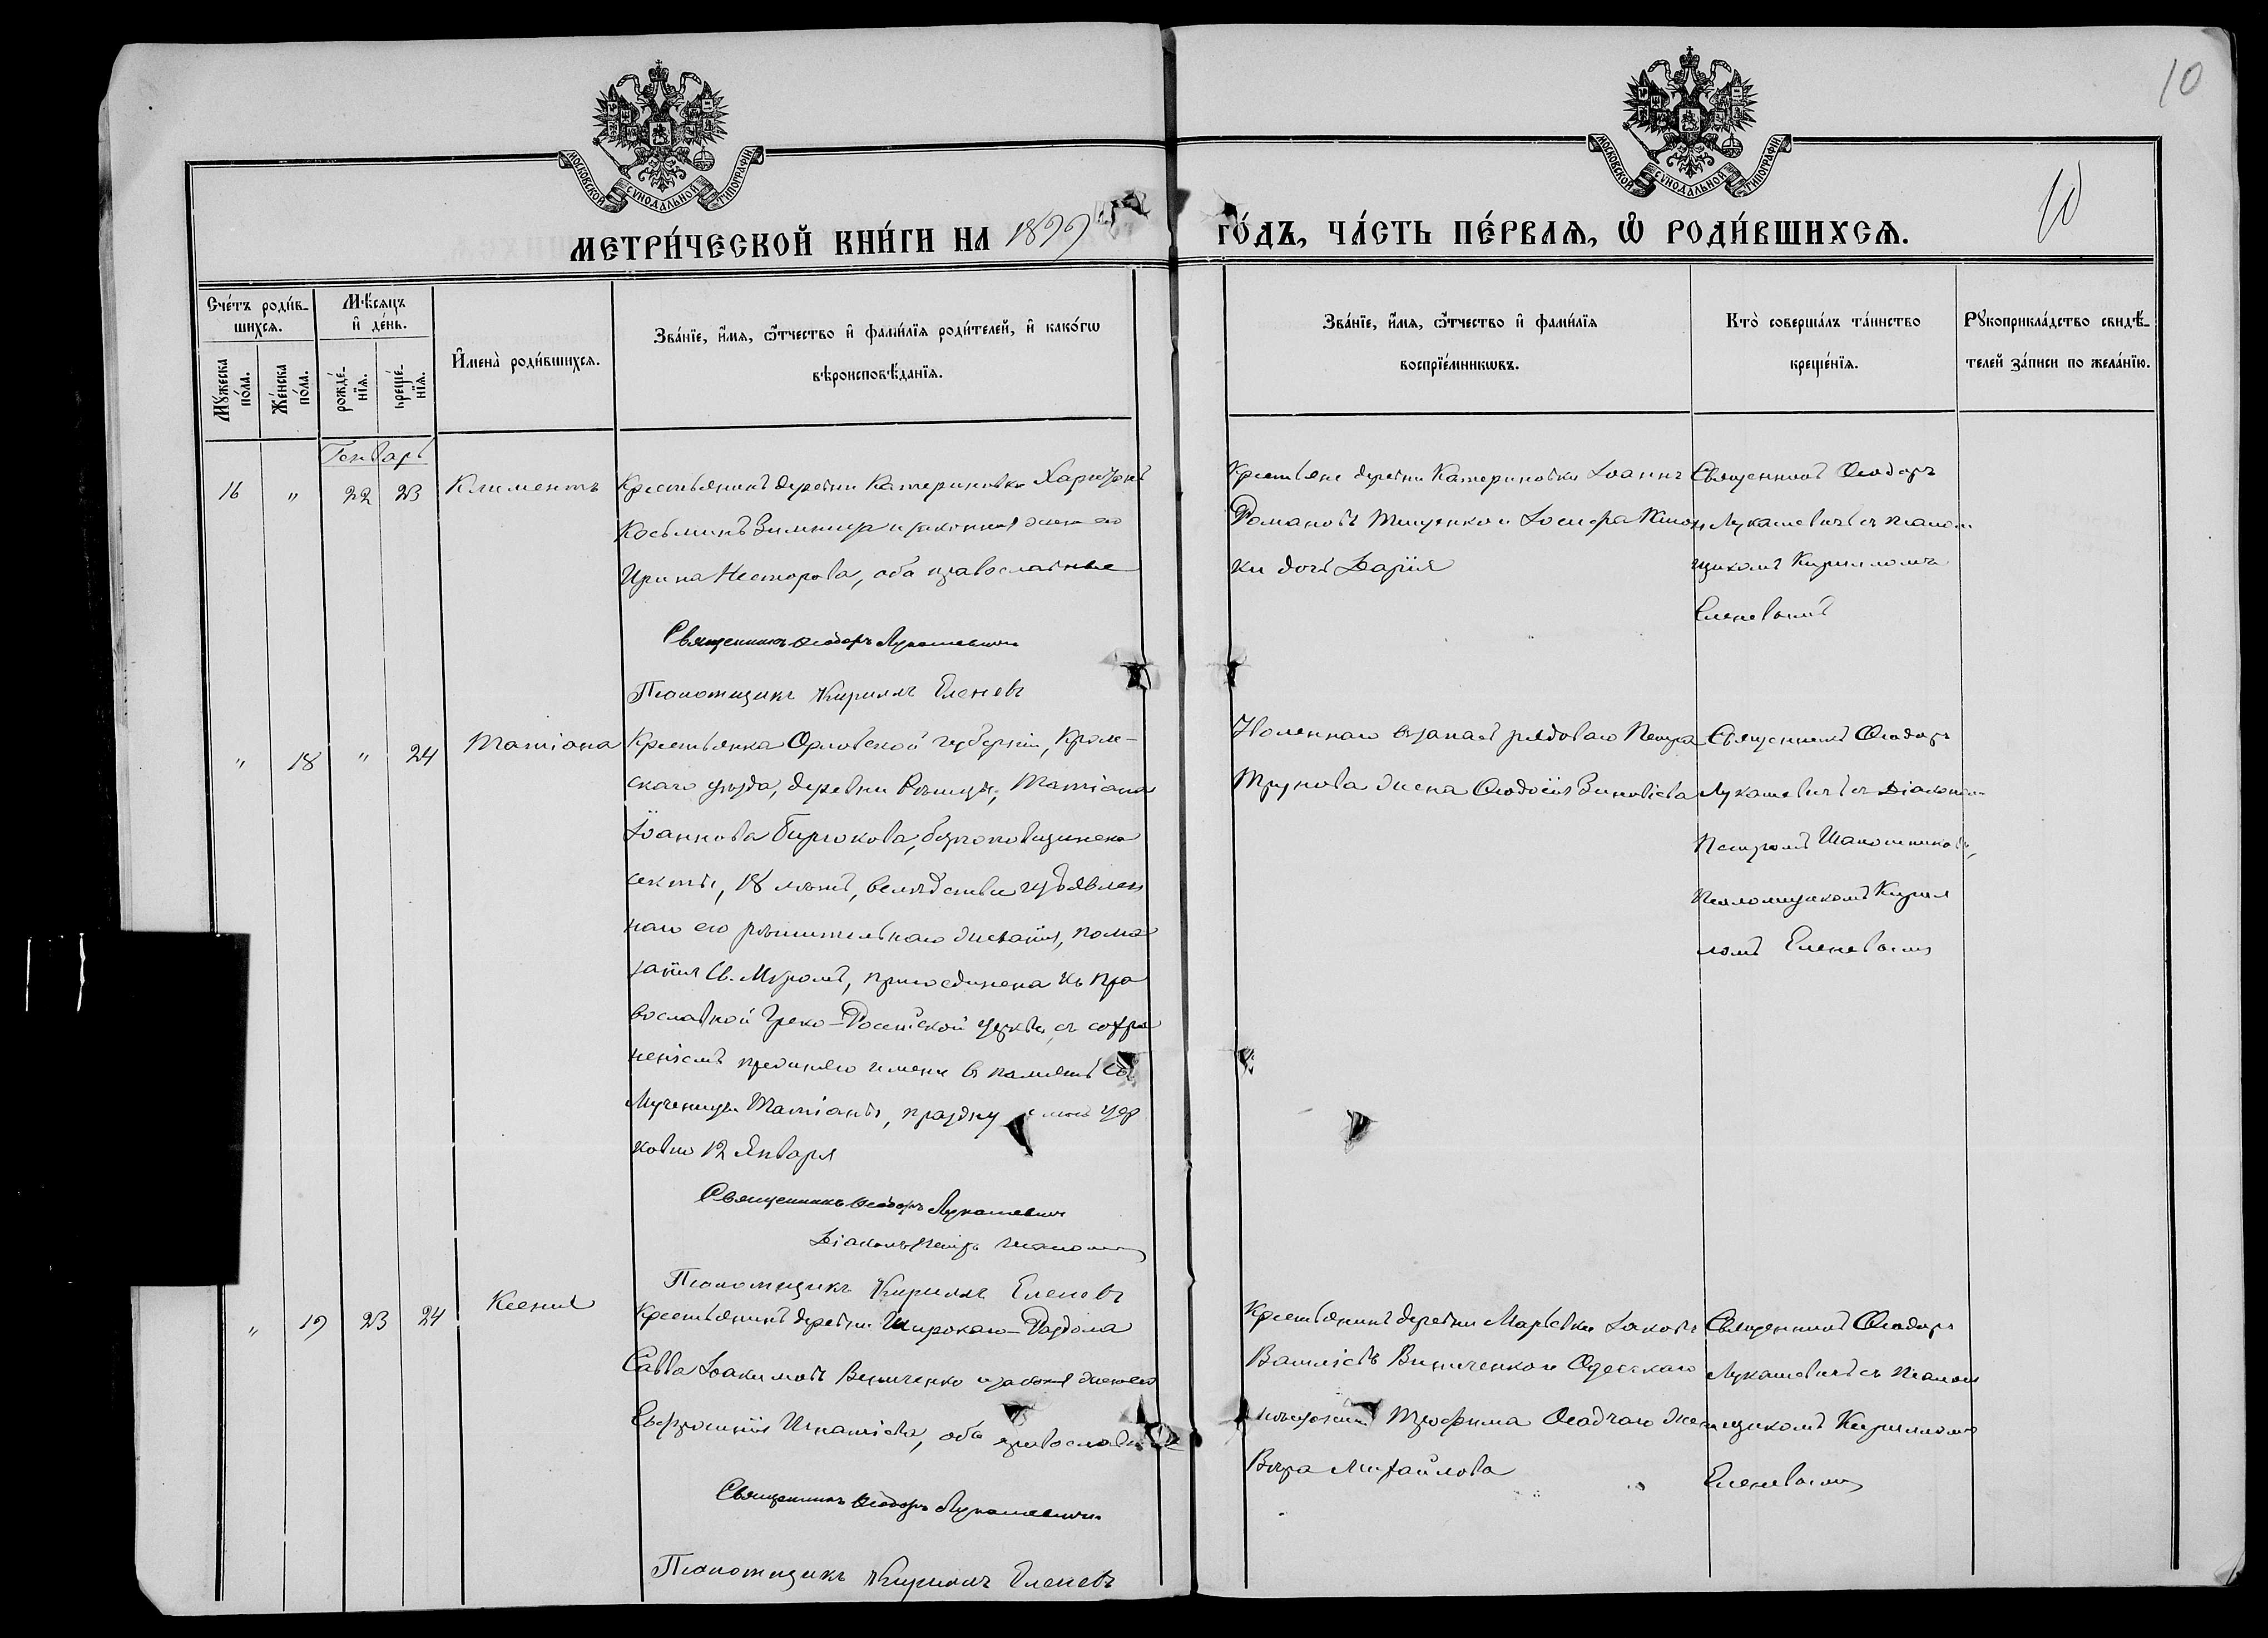 10
МОСКОВСКОЙ СѴНОДАЛЬНОЙ ТИПОГРАФІИ.
МОСКОВСКОЙ СѴНОДАЛЬНОЙ ТИПОГРАФІИ.
10
МЕТРИ́ЧЕСКОЙ КНИ́ГИ НА 1899 ГО́ДЪ, ЧА́СТЬ ПЕ́РВАЯ, Ѡ РОДИ́ВШИХСЯ.
Сче́тъ роди́в-
шихся.
Мꙋ́жеска
по́ла.
Же́нска
по́ла.
Мѣ́сяцъ
и҆ де́нь.
рожде́-
нїя.
креще́-
нїя.
И҆мена̀ роди́вшихся.
Зва́нїе, и҆́мя, ѻ҆́тчество и҆ фами́лїя роди́телей, и҆ како́гѡ
вѣроисповѣ́данїя.
Зва́нїе, и҆́мя, ѻ҆́тчество и҆ фами́лїя
воспрїе́мникѡвъ.
Кто̀ соверша́лъ та́инство
креще́нїя.
Рꙋкоприкла́дство свидѣ́-
телей за́писи по жела́нїю.
Генварь
16 " 22 23 Климентъ
Крестьянинъ деревни Катериновки Харитонъ
Косьминъ и законная жена его
Ирина Несторова, оба православные
Священникъ Ѳеодоръ Лукашевичъ
Псаломщикъ Кириллъ Еленевъ
Крестьяне деревни Катериновки Іоаннъ
Романовъ и Іосифа
ки дочь Дарія
Священникъ Ѳеодоръ
Лукашевичъ съ псалом
щикомъ Кирилломъ
Еленевымъ
" 18 " 24 Татіана
Крестьянка Орловской губерніи, Кром-
скаго уѣзда, деревни Татіана
Іоаннова Бирюкова, безпоповщинской
секты, 18 лѣтъ, вслѣдствіе изъявлен
наго ею рѣшительнаго желанія, пома
занія Св. Мѵромъ, присоединена къ Пра
вославной Греко-Россійской церкви, съ сохра
неніемъ прежняго имени въ память Св.
Мученицы Татіаны, празднуемой цер
ковію 12 Января
Священникъ Ѳеодоръ Лукашевичъ
Діаконъ Петръ
Псаломщикъ Кириллъ Еленевъ
Уволеннаго въ запасъ рядоваго Петра
Трунова жена Ѳеодосія Зиновіева
Священникъ Ѳеодоръ
Лукашевичъ съ Діакономъ
Петромъ
Псаломщикомъ Кирил
ломъ Еленевымъ
" 19 23 24 Ксенія
Крестьянинъ деревни Широкаго-Раздола
Савва Іоакимовъ Винниченко и законная жена его
Евфросинія Игнатіева, оба православные
Священникъ Ѳеодоръ Лукашевичъ
Псаломщикъ Кириллъ Еленевъ
Крестьянинъ деревни Марьевки Іаковъ
Василіевъ Винниченко и Одесскаго
Трофима Осадчаго жена
Вѣра Михайлова
Священникъ Ѳеодоръ
Лукашевичъ съ псалом
щикомъ Кирилломъ
Еленевымъ